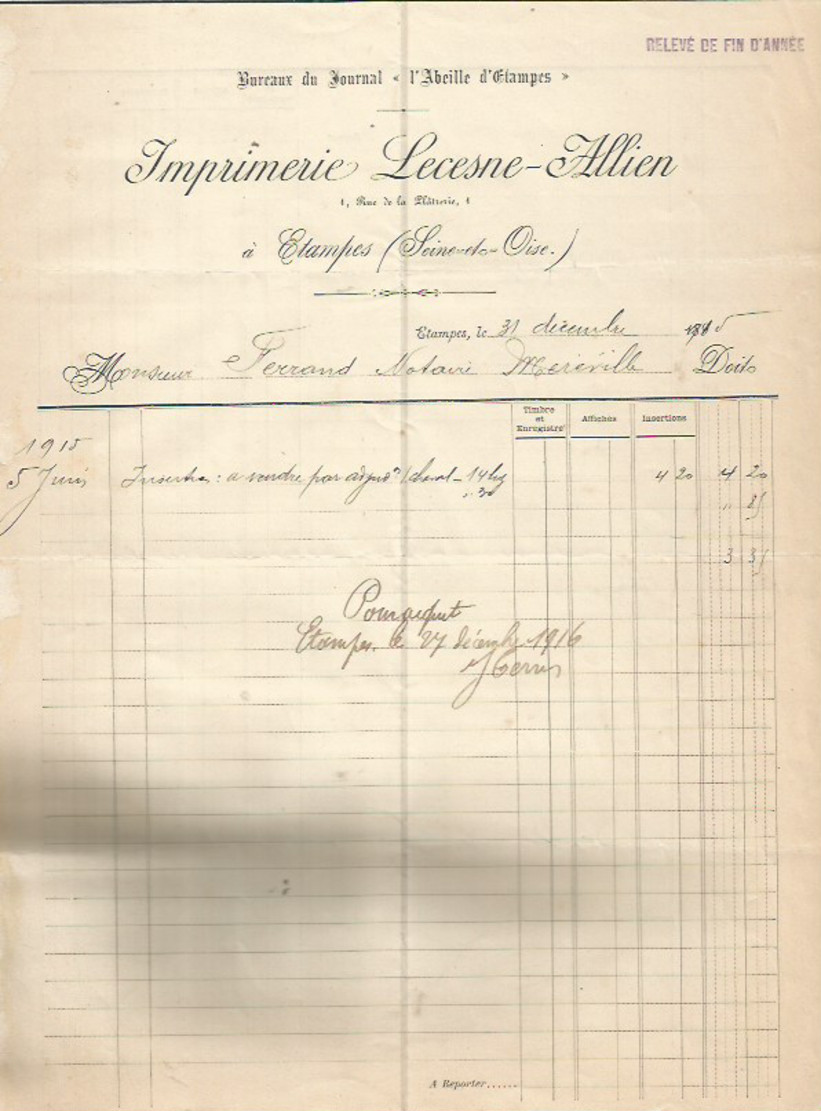 RELEVÉ DE FIN D'ANNÉE
Bureaux du Journal « l'Abeille d'Etampes »
Imprimerie Lecesne-Allien
1, Rue de la Plâtrerie, 1
à Etampes (Seine-et-Oise.)
Etampes, le 31 décembre
Monsieur Ferrand Notaire Méréville Doit
Timbre et Enregistré Affiches Insertions
1915
5 Juin Insertion : a vendre par adjud.on 1 cheval - 14 lig 4 20 4 20
" 30 " 85
3 35
Pour acquit
Etampes, le 27 décembre 1916
A Reporter......